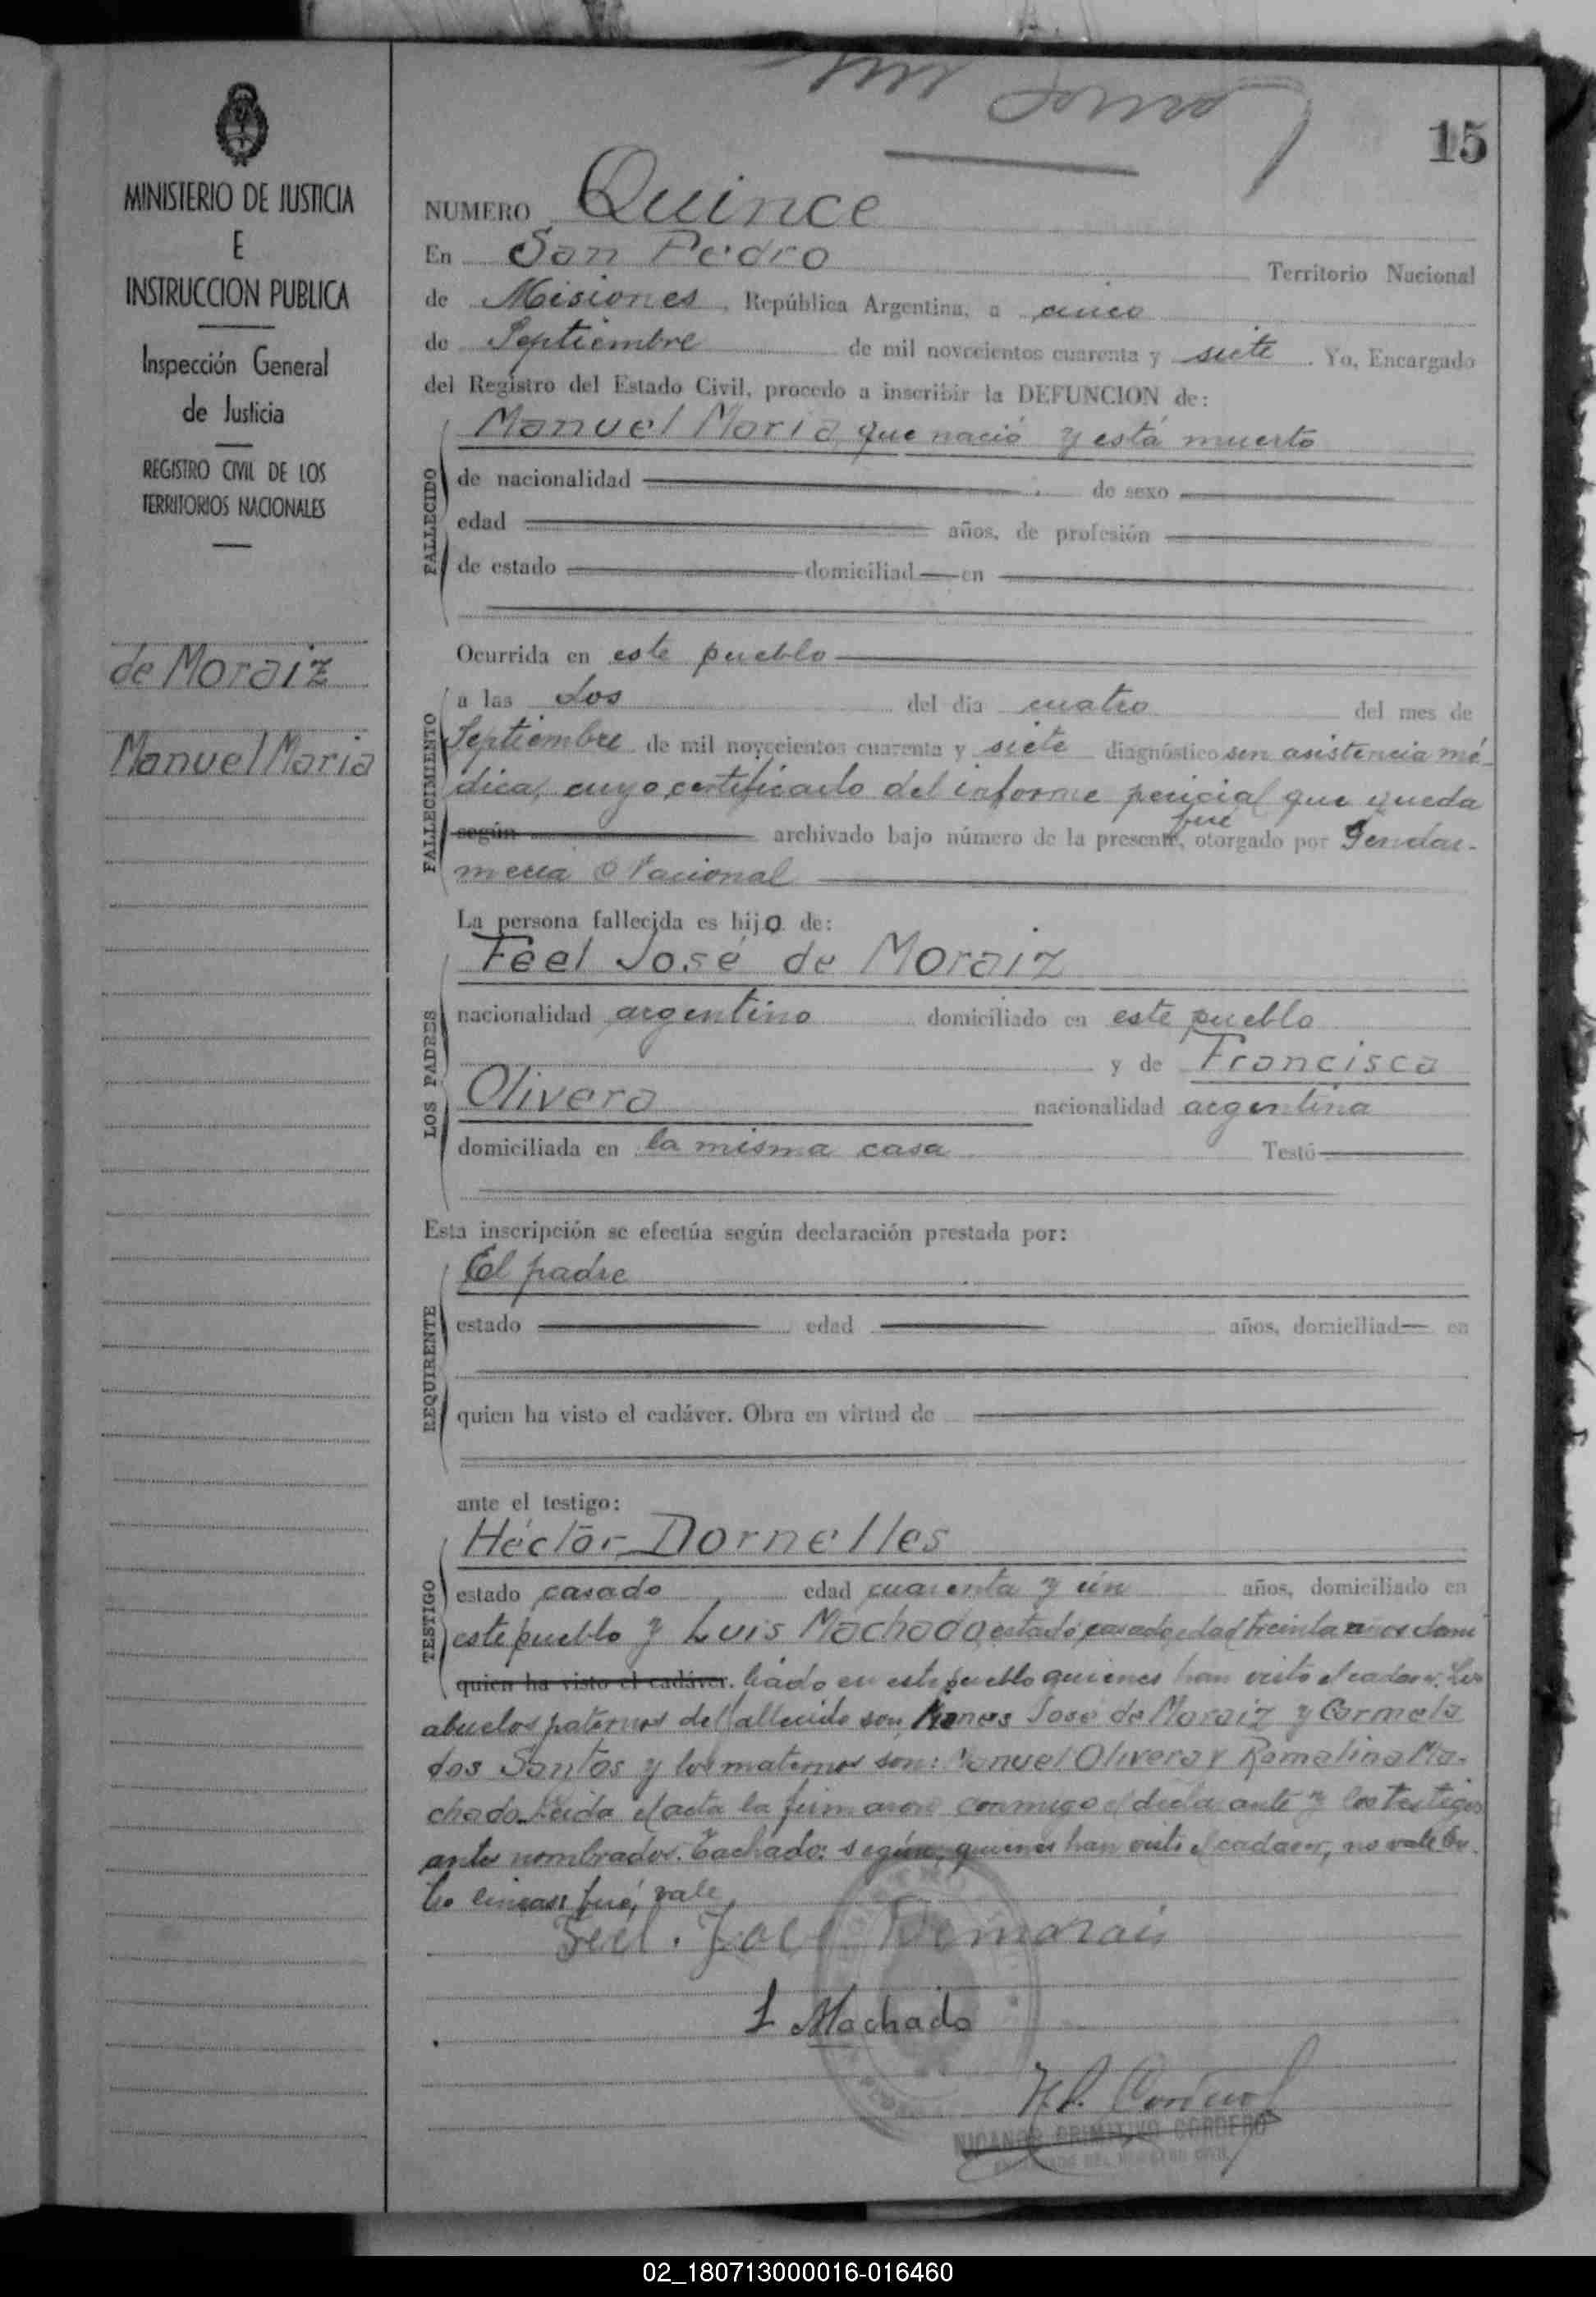 15
MINISTERIO DE JUSTICIA
E
INSTRUCCION PUBLICA
Inspección General
de Justicia
REGISTRO CIVIL DE LOS
TERRITORIOS NACIONALES
de Moraiz
Manuel Maria
NUMERO Quince
En San Pedro Territorio Nacional
de Misiones, República Argentina, a cinco
de Septiembre de mil novecientos cuarenta y siete. Yo, Encargado
del Registro del Estado Civil, procedo a inscribir la DEFUNCION de:
Manuel Maria, que nació y está muerto
FALLECIDO
de nacionalidad de sexo
edad años, de profesión
de estado domiciliad en
Ocurrida en este pueblo
FALLECIMIENTO
a las dos del dia cuatro del mes de
Septiembre de mil novecientos cuarenta y siete diagnóstico sin asistencia mé-
dica, cuyo certificado del informe pericial que queda
fué
según archivado bajo número de la presente, otorgado por Gendar-
meria Nacional
La persona fallecida es hijo de:
LOS PADRES
Feel José de Moraiz
nacionalidad argentino domiciliado en este pueblo
y de Francisca
Olivera nacionalidad argentina
domiciliada en la misma casa Testó
Esta inscripción se efectúa según declaración prestada por:
REQUIRENTE
El padre
estado edad años, domiciliad en
quien ha visto el cadáver. Obra en virtud de
ante el testigo:
TESTIGO
Héctor Dornelles
estado casado edad cuarenta y un años, domiciliado en
este pueblo y Luis Machado, estado casado, edad treinta años domi
quien ha visto el cadáver. liado en este pueblo quienes han visto el cadaver. Los
abuelos paternos del fallecido son José de Moraiz y Carmela
dos Santos y los maternos son: Manuel Olivera y Romalina Ma-
chado. Leida el acta la firmaron conmigo el declarante y los testigos
antes nombrados. Tachado: según, quienes han visto el cadaver, no vale En
tre lineas: fué, vale
Feel. José Demorais
L Machado
NICANOR PRIMITIVO CORDERO
02_180713000016-016460